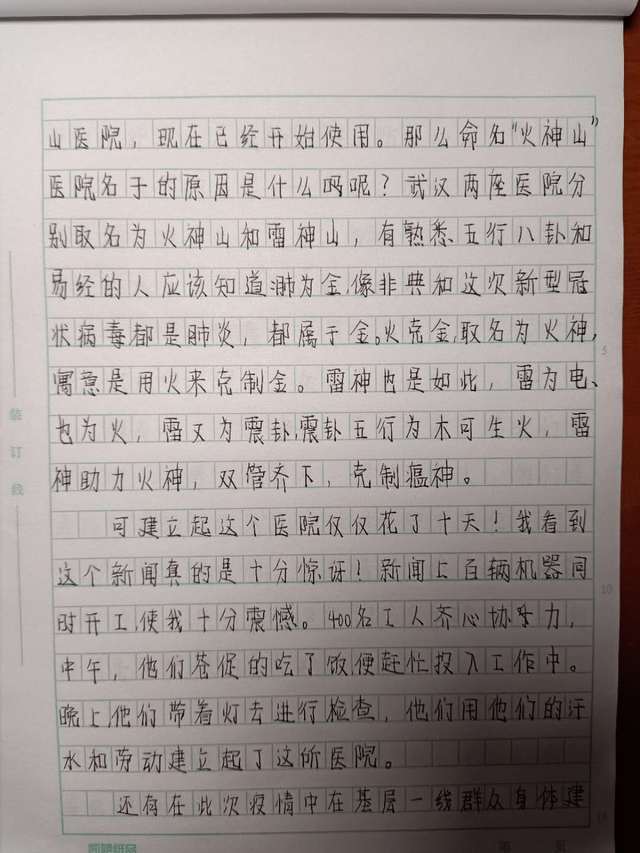 山医院，现在已经开始使用。那么命名“火神山”
医院名于的原因是什么吗呢？武汉两座医院分
别取名为火神山和雷神山，有熟悉五行八卦和
易经的人应该知道肺为金，像非典和这次新型冠
状病毒都是肺炎，都属于金。火克金，取名为火神，
寓意是用火来克制金。雷神也是如此，雷为电、
也为火，雷又为震卦，震卦五行为木可生火，雷
神助力火神，双管齐下，克制瘟神。
可建立起这个医院仅仅花了十天！我看到
这个新闻真的是十分惊讶！新闻上百辆机器同
时开工，使我十分震憾。400名工人齐心协力，
中午，他们苍促的吃了饭便赶忙投入工作中。
晚上，他们带着灯去进行检查，他们用他们的汗
水和劳动建立起了这所医院。
还存在此次疫情中在基层一线群众身体建
装订线
5
10
15
第 页